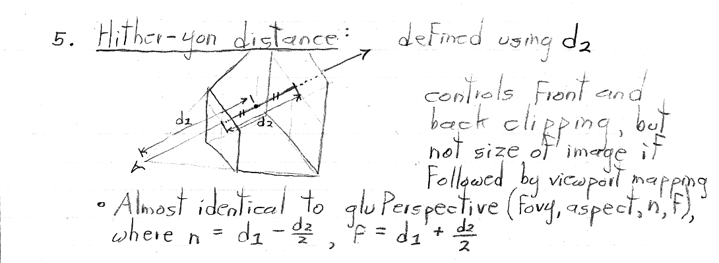 5. Hither-yon distance: defined using d2
d1
d2
controls front and
back clipping, but
not size of image if
followed by viewport mapping
• Almost identical to gluPerspective (fovy, aspect, n, f),
where n = d1 - d2/2, f = d1 + d2/2